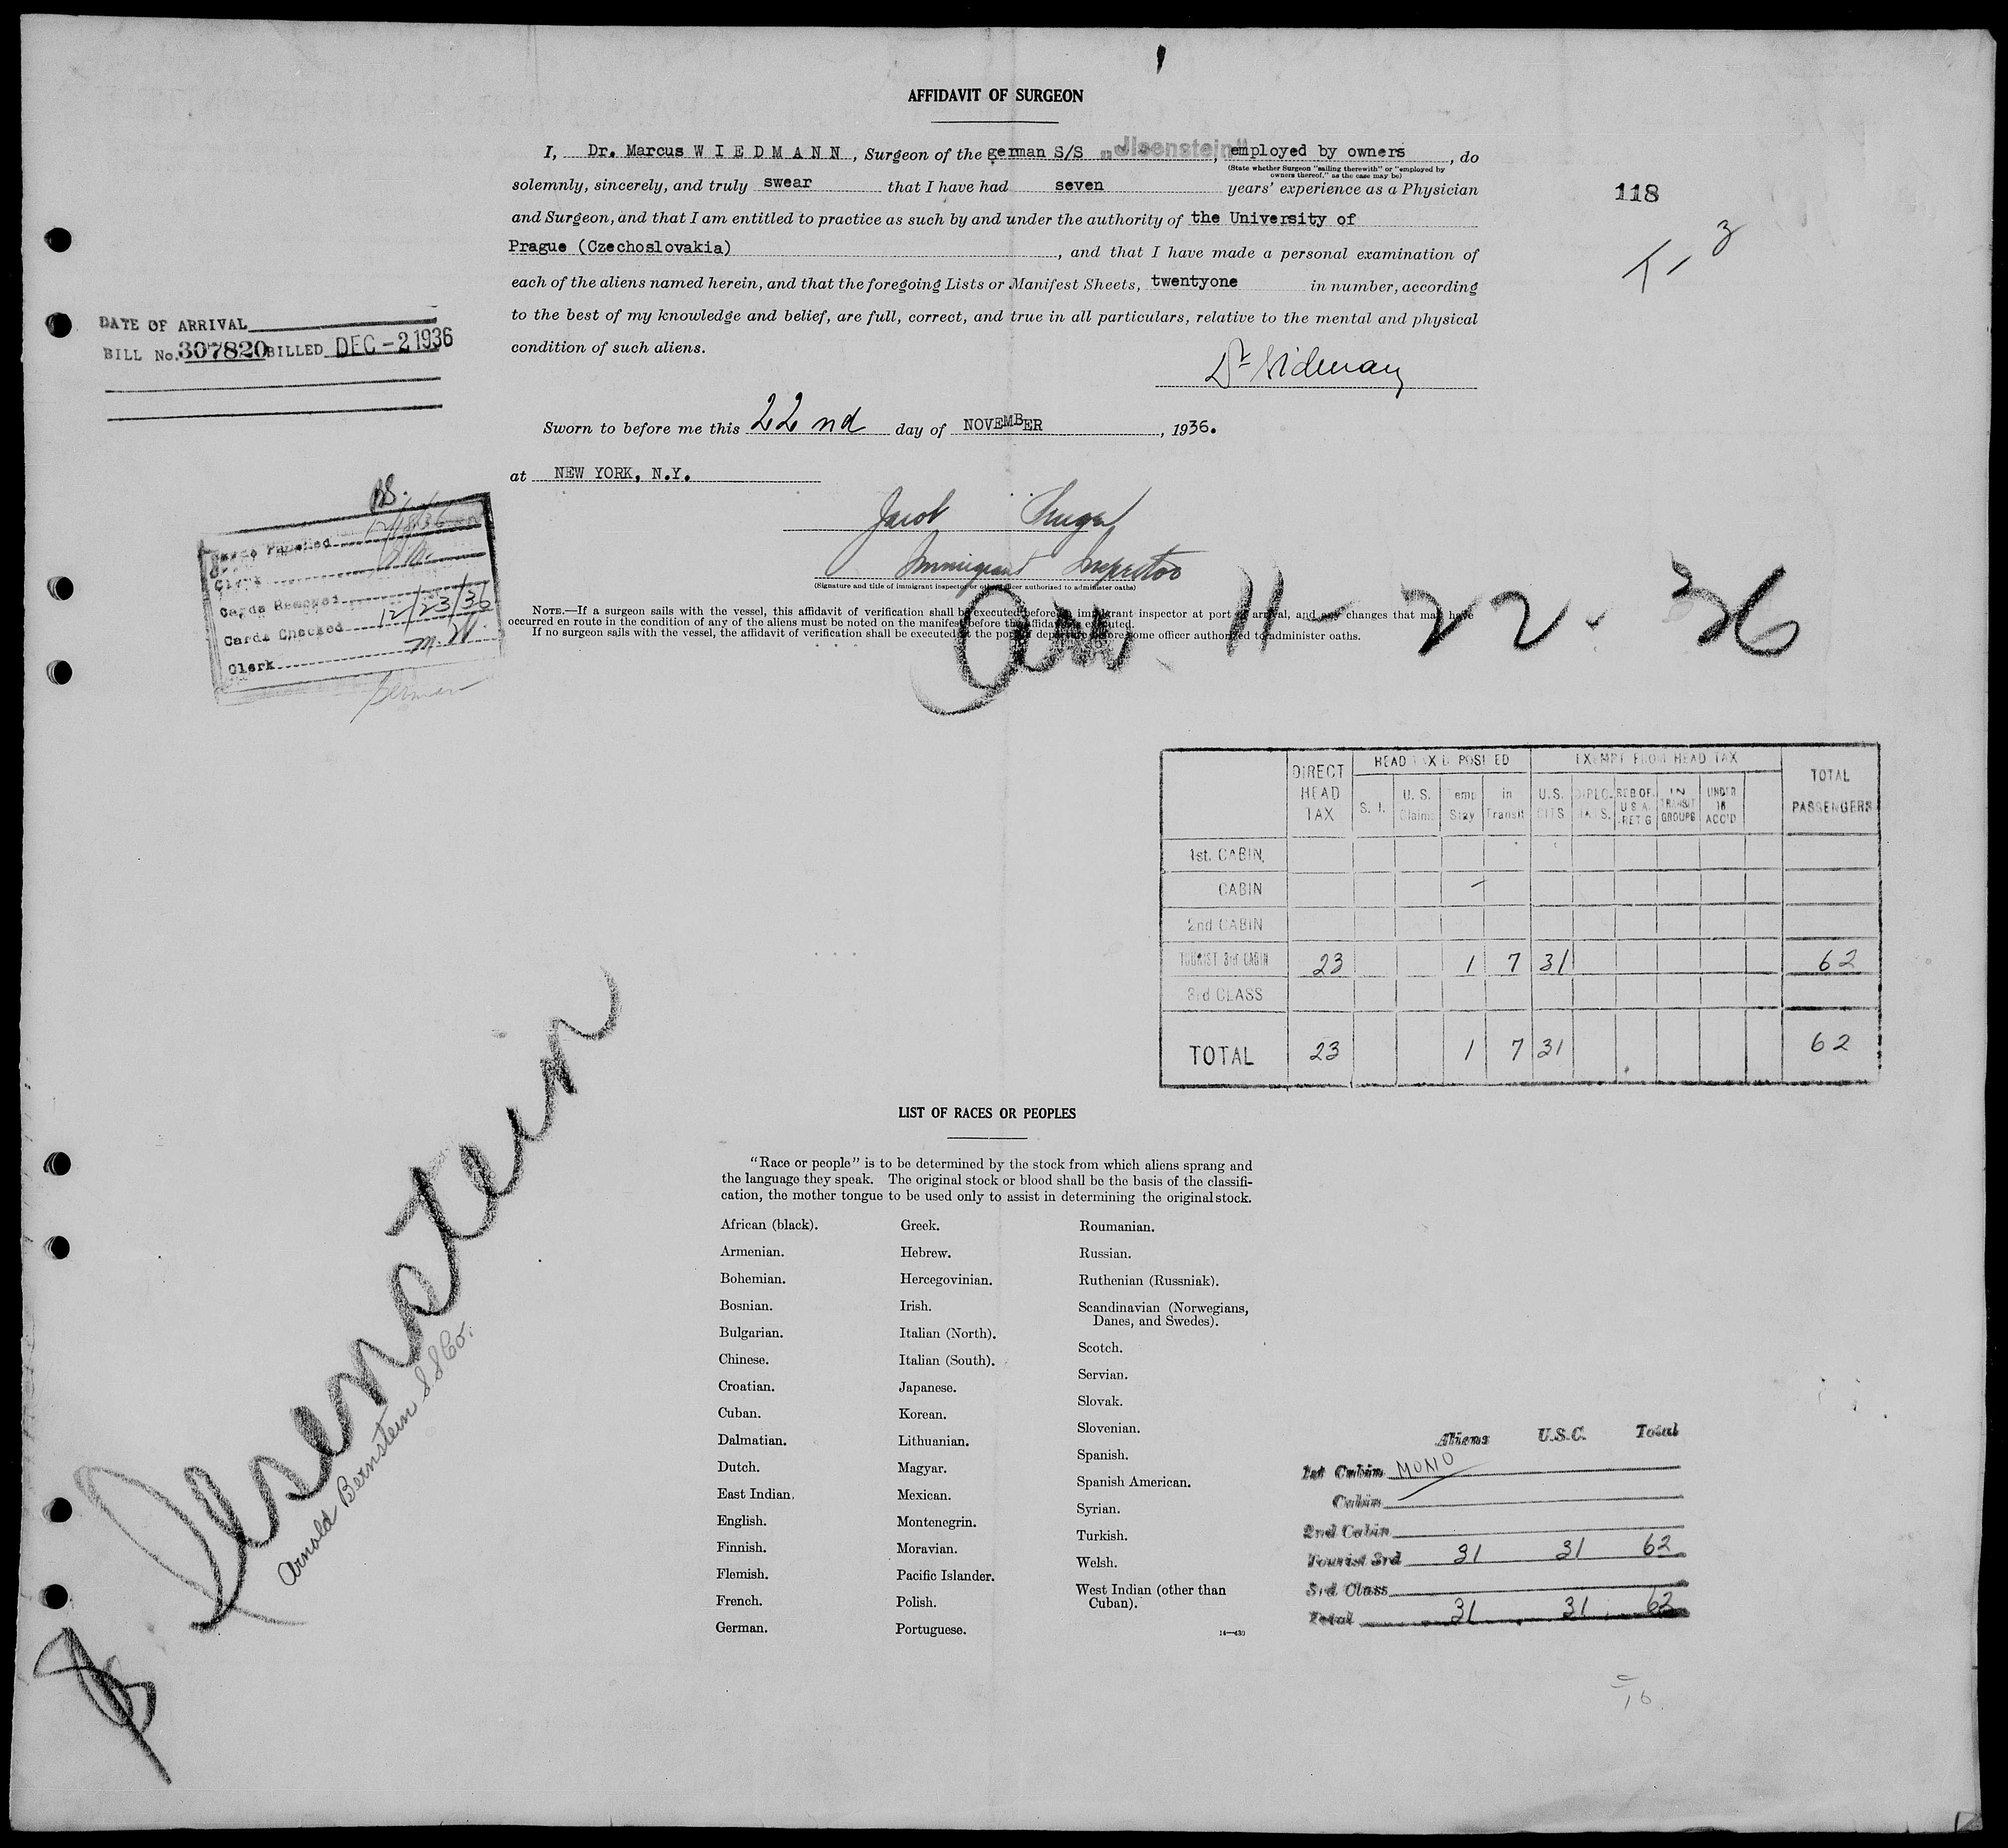 AFFIDAVIT OF SURGEON
I, Dr. Marcus W I E D M A N N, Surgeon of the german S/S "Ilsenstein", employed by owners, do
(State whether Surgeon "sailing therewith" or "employed by
owners thereof," as the case may be)
solemnly, sincerely, and truly swear that I have had seven years' experience as a Physician
118
and Surgeon, and that I am entitled to practice as such by and under the authority of the University of
Prague (Czechoslovakia), and that I have made a personal examination of
each of the aliens named herein, and that the foregoing Lists or Manifest Sheets, twentyone in number, according
to the best of my knowledge and belief, are full, correct, and true in all particulars, relative to the mental and physical
condition of such aliens.
DATE OF ARRIVAL
BILL No. 307820 BILLED DEC -2 1936
Sworn to before me this 22nd day of NOVEMBER, 1936.
at NEW YORK, N.Y.
Jacob
Immigrant Inspector
(Signature and title of immigrant inspector or other officer authorized to administer oaths)
NOTE.—If a surgeon sails with the vessel, this affidavit of verification shall be executed before an immigrant inspector at port of arrival, and any changes that may have
occurred en route in the condition of any of the aliens must be noted on the manifest before the affidavit is executed.
If no surgeon sails with the vessel, the affidavit of verification shall be executed at the port of departure before some officer authorized to administer oaths.
12/18/36
Clerk
Cards Removed
Cards Checked 12/23/36
Clerk M. W.
German
Arr. 11-22-36
DIRECT HEAD TAX
HEAD TAX DEPOSITED
EXEMPT FROM HEAD TAX
TOTAL PASSENGERS
S. I.
U. S. Claims
Temp Stay
In Transit
U.S. CITS
DIPLO-MATS.
RES OF U S A. RET'G
IN TRANSIT GROUPS
UNDER 16 ACC'D
1st. CABIN
CABIN
2nd CABIN
TOURIST 3rd CABIN 23 1 7 31 62
3rd CLASS
TOTAL 23 1 7 31 62
LIST OF RACES OR PEOPLES
"Race or people" is to be determined by the stock from which aliens sprang and
the language they speak. The original stock or blood shall be the basis of the classifi-
cation, the mother tongue to be used only to assist in determining the original stock.
African (black).
Armenian.
Bohemian.
Bosnian.
Bulgarian.
Chinese.
Croatian.
Cuban.
Dalmatian.
Dutch.
East Indian.
English.
Finnish.
Flemish.
French.
German.
Greek.
Hebrew.
Hercegovinian.
Irish.
Italian (North).
Italian (South).
Japanese.
Korean.
Lithuanian.
Magyar.
Mexican.
Montenegrin.
Moravian.
Pacific Islander.
Polish.
Portuguese.
Roumanian.
Russian.
Ruthenian (Russniak).
Scandinavian (Norwegians,
Danes, and Swedes).
Scotch.
Servian.
Slovak.
Slovenian.
Spanish.
Spanish American.
Syrian.
Turkish.
Welsh.
West Indian (other than
Cuban).
14—430
Ilsenstein
Arnold Bernstein S S Co.
Aliens U.S.C. Total
1st Cabin MONO
Cabin
2nd Cabin
Tourist 3rd 31 31 62
3rd Class
Total 31 31 62